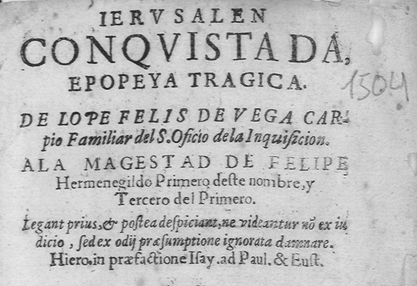 IERVSALEN
CONQVISTADA,
EPOPEYA TRAGICA.
1504
DE LOPE FELIS DE VEGA CAR-
pio Familiar del S. Oficio de la Inquisicion.
A LA MAGESTAD DE FELIPE
Hermenegildo Primero deste nombre, y
Tercero del Primero.
Legant prius, & postea despiciant, ne videantur nõ ex iu
dicio, sed ex odij præsumptione ignorata damnare.
Hiero. in præfactione Isay. ad Paul. & Eust.